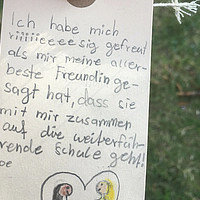 Ich habe mich
riiiiieeeeesig gefreut
als mir meine aller-
beste Freundin ge-
sagt hat, dass sie
mit mir zusammen
auf die weiterfüh-
rende Schule geht!